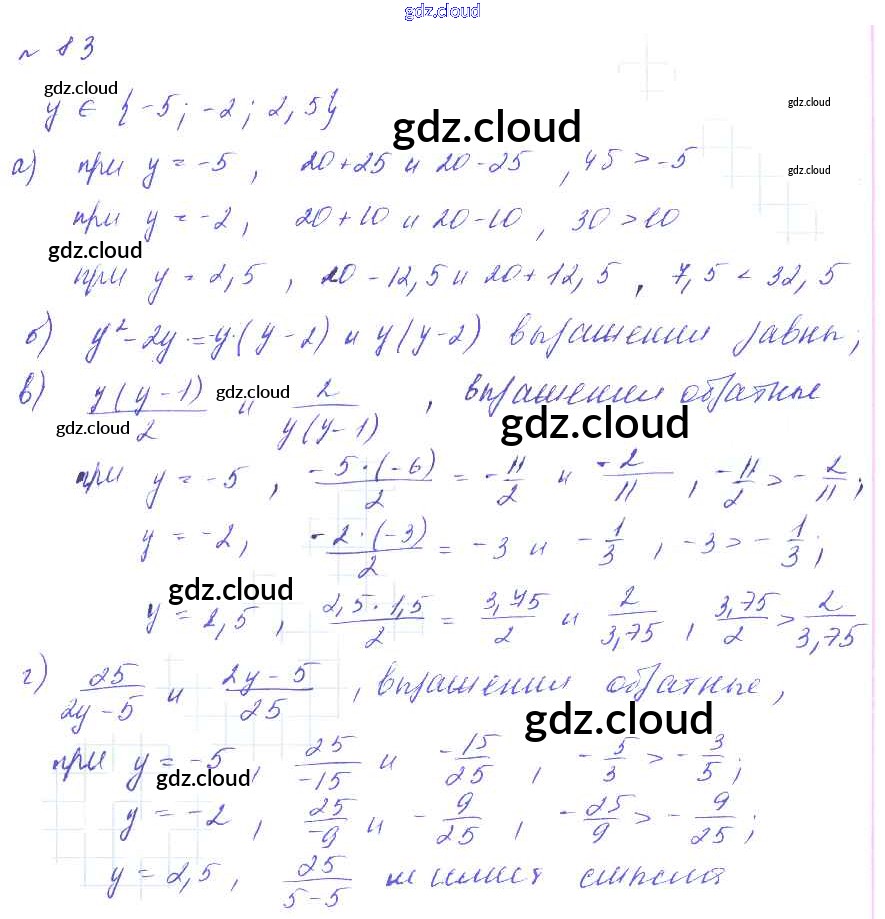 gdz.cloud
№ 83
gdz.cloud
y ∈ {-5; -2; 2,5}
gdz.cloud
gdz.cloud
а) при y = -5, 20+25 и 20-25, 45 > -5
gdz.cloud
при y = -2, 20+10 и 20-10, 30 > 10
gdz.cloud
при y = 2,5, 20-12,5 и 20+12,5, 7,5 < 32,5
б) y² - 2y = y·(y-2) и y(y-2) выражении равны;
в) y(y-1)/2 и 2/y(y-1), выражении обратные
gdz.cloud
gdz.cloud
gdz.cloud
при y = -5, -5·(-6)/2 = -11/2 и -2/11, -11/2 > -2/11;
y = -2, -2·(-3)/2 = -3 и -1/3, -3 > -1/3;
gdz.cloud
y = 2,5, 2,5·1,5/2 = 3,75/2 и 2/3,75, 3,75/2 > 2/3,75
г) 25/2y-5 и 2y-5/25, выражении обратные,
gdz.cloud
при y = -5, 25/-15 и -15/25, -5/3 > -3/5;
gdz.cloud
y = -2, 25/-9 и -9/25, -25/9 > -9/25;
y = 2,5, 25/5-5 не имеет смысла